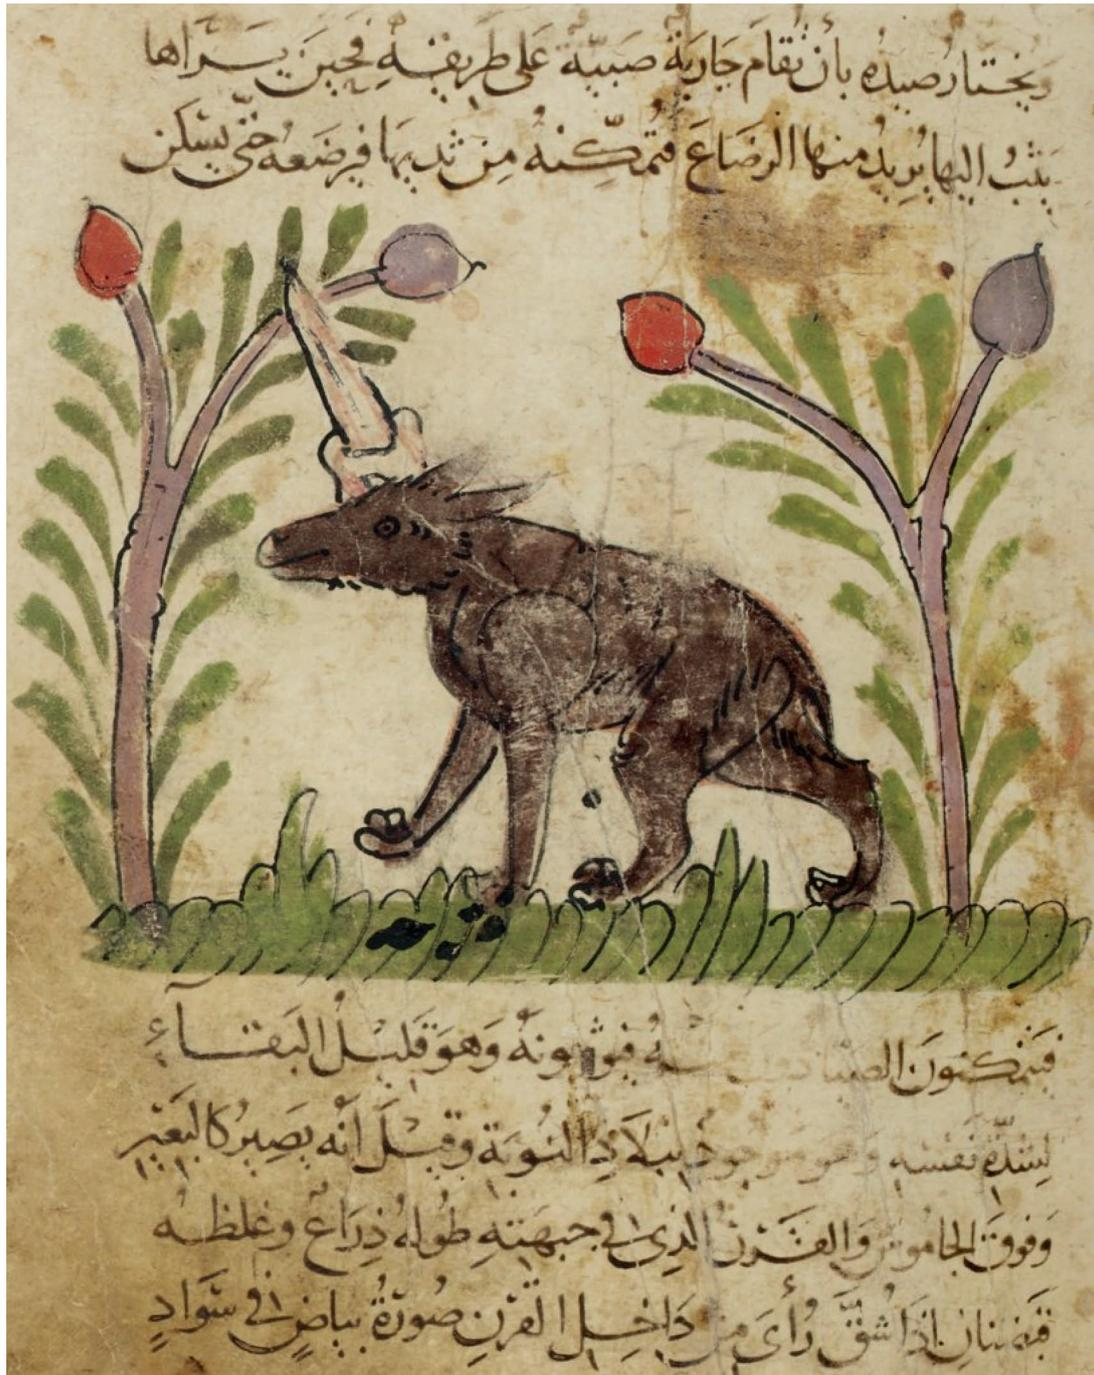 ويختار صيده بأن تقام جارية صبيّة على طريقه فحين يراها
يثبُ اليها يريدُ منها الرضاعَ فتمكّنهُ مِن ثديها فيرضعه حتى يسكن
فيتمكنونَ فيوثقونهُ وَهوَ قليلُ البَقاءِ
لِشدّة نفسه وهو موجود ببلاد النُوبَة وقيلَ أنه يَصيرُ كالبَعير
وَفوقَ الجاموس وَالقَرن الذي في جبهته طولهُ ذِراعٌ وغلظه
قبضتان اذَا شقَّ رُأىَ من دَاخل القرنِ صُورَةُ بياضٍ في سَوادٍ